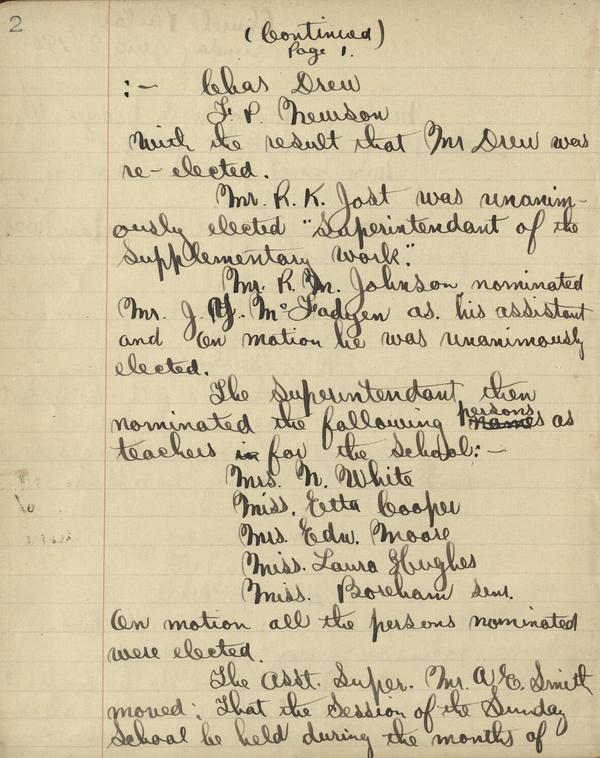 2
(Continued)
Page 1.
:- Chas Drew
F. P. Newson
With the result that Mr Drew was
re-elected.
Mr. R. K. Jost was unanim-
ously elected "Superintendant of the
Supplementary Work".
Mr. R. M. Johnson nominated
Mr. J. Y. McFadyen as his assistant
and On motion he was unanimously
elected.
The Superintendant then
nominated the following persons names as
teachers in for the School:-
Mrs. N. White
Miss. Etta Cooper
Mrs. Edw. Moore
Miss. Laura Hughes
Miss. Boreham Senr.
On motion all the persons nominated
were elected.
The Asst. Super. Mr. A. E. Smith
moved: That the Session of the Sunday
School be held during the months of